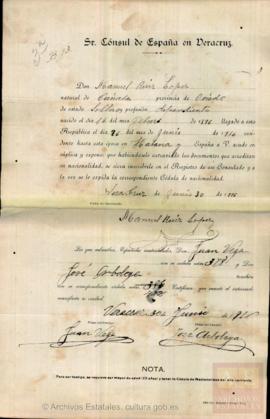 Sr. Cónsul de España en Veracruz.
Don Manuel Ruiz Lopez
natural de provincia de Oviedo
de estado Soltero profesión
nacido el 14 del mes de 1896 llegado a esta
República el 26 del mes de Junio de 1914
viniendo hasta esta época en Habana y España a V. acude en
súplica y expone: que habiéndosele extraviado los documentos que acreditan
su nacionalidad, se sirva inscribirlo en el Registro de ese Consulado y a
la vez se le expida la correspondiente Cédula de nacionalidad.
Veracruz Junio 30 de 1916
Manuel Ruiz Lopez
Los que suscriben, Españoles matriculados, Don Juan Vega
con su cédula núm. 378 y Don
José Arboleya también
con su correspondiente cédula núm. Certifican que consta el interesado
manifiesta es verdad.
Veracruz 30 Junio 1916
Juan Vega José Arboleya
NOTA.
© Archivos Estatales, cultura.gob.es